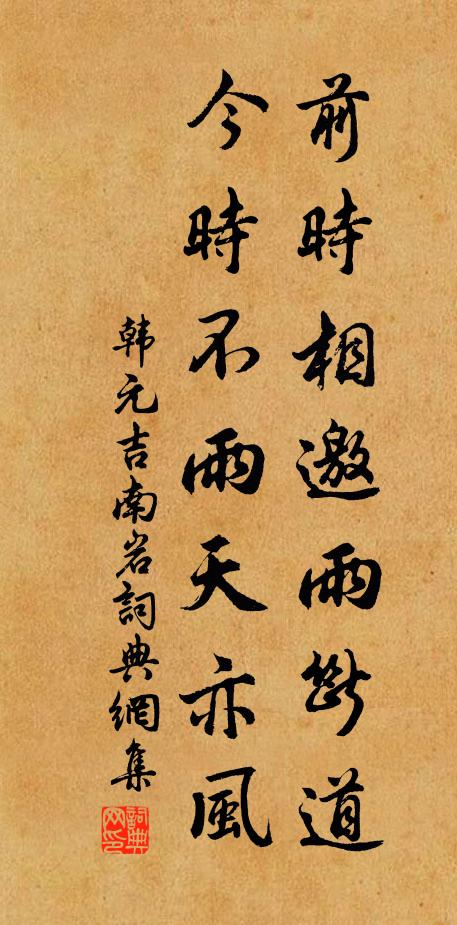 前時相邀雨斷道
今時不雨天亦風
韩元吉南岩詞典網集
詞典网印